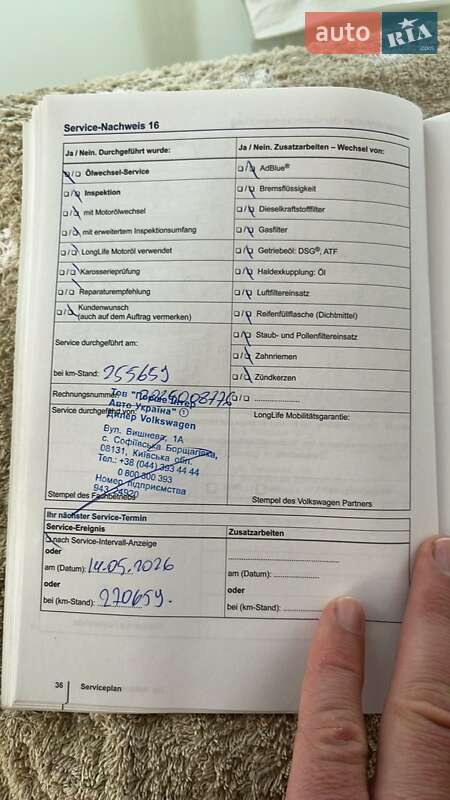 auto RIA .com
Service-Nachweis 16
Ja / Nein. Durchgeführt wurde:
Ölwechsel-Service
Inspektion
mit Motorölwechsel
mit erweitertem Inspektionsumfang
LongLife Motoröl verwendet
Karosserieprüfung
Reparaturempfehlung
Kundenwunsch
(auch auf dem Auftrag vermerken)
Service durchgeführt am:
bei km-Stand: 255659
Rechnungsnummer:
Service durchgeführt von:
Тов "Перше Інтер
Авто Україна" 1
Дилер Volkswagen
Вул. Вишнева, 1А
с. Софіївська Борщагівка,
08131, Київська обл.
Тел.: +38 (044) 393 44 44
0 800 300 393
Номер підприємства
943
Stempel des Fachbetriebs
Ja / Nein. Zusatzarbeiten – Wechsel von:
AdBlue®
Bremsflüssigkeit
Dieselkraftstofffilter
Gasfilter
Getriebeöl: DSG®, ATF
Haldexkupplung: Öl
Luftfiltereinsatz
Reifenfüllflasche (Dichtmittel)
Staub- und Pollenfiltereinsatz
Zahnriemen
Zündkerzen
LongLife Mobilitätsgarantie:
Stempel des Volkswagen Partners
Ihr nächster Service-Termin
Service-Ereignis
nach Service-Intervall-Anzeige
oder
am (Datum): 14.05.2026
oder
bei (km-Stand): 270659.
Zusatzarbeiten
am (Datum):
oder
bei (km-Stand):
36 Serviceplan